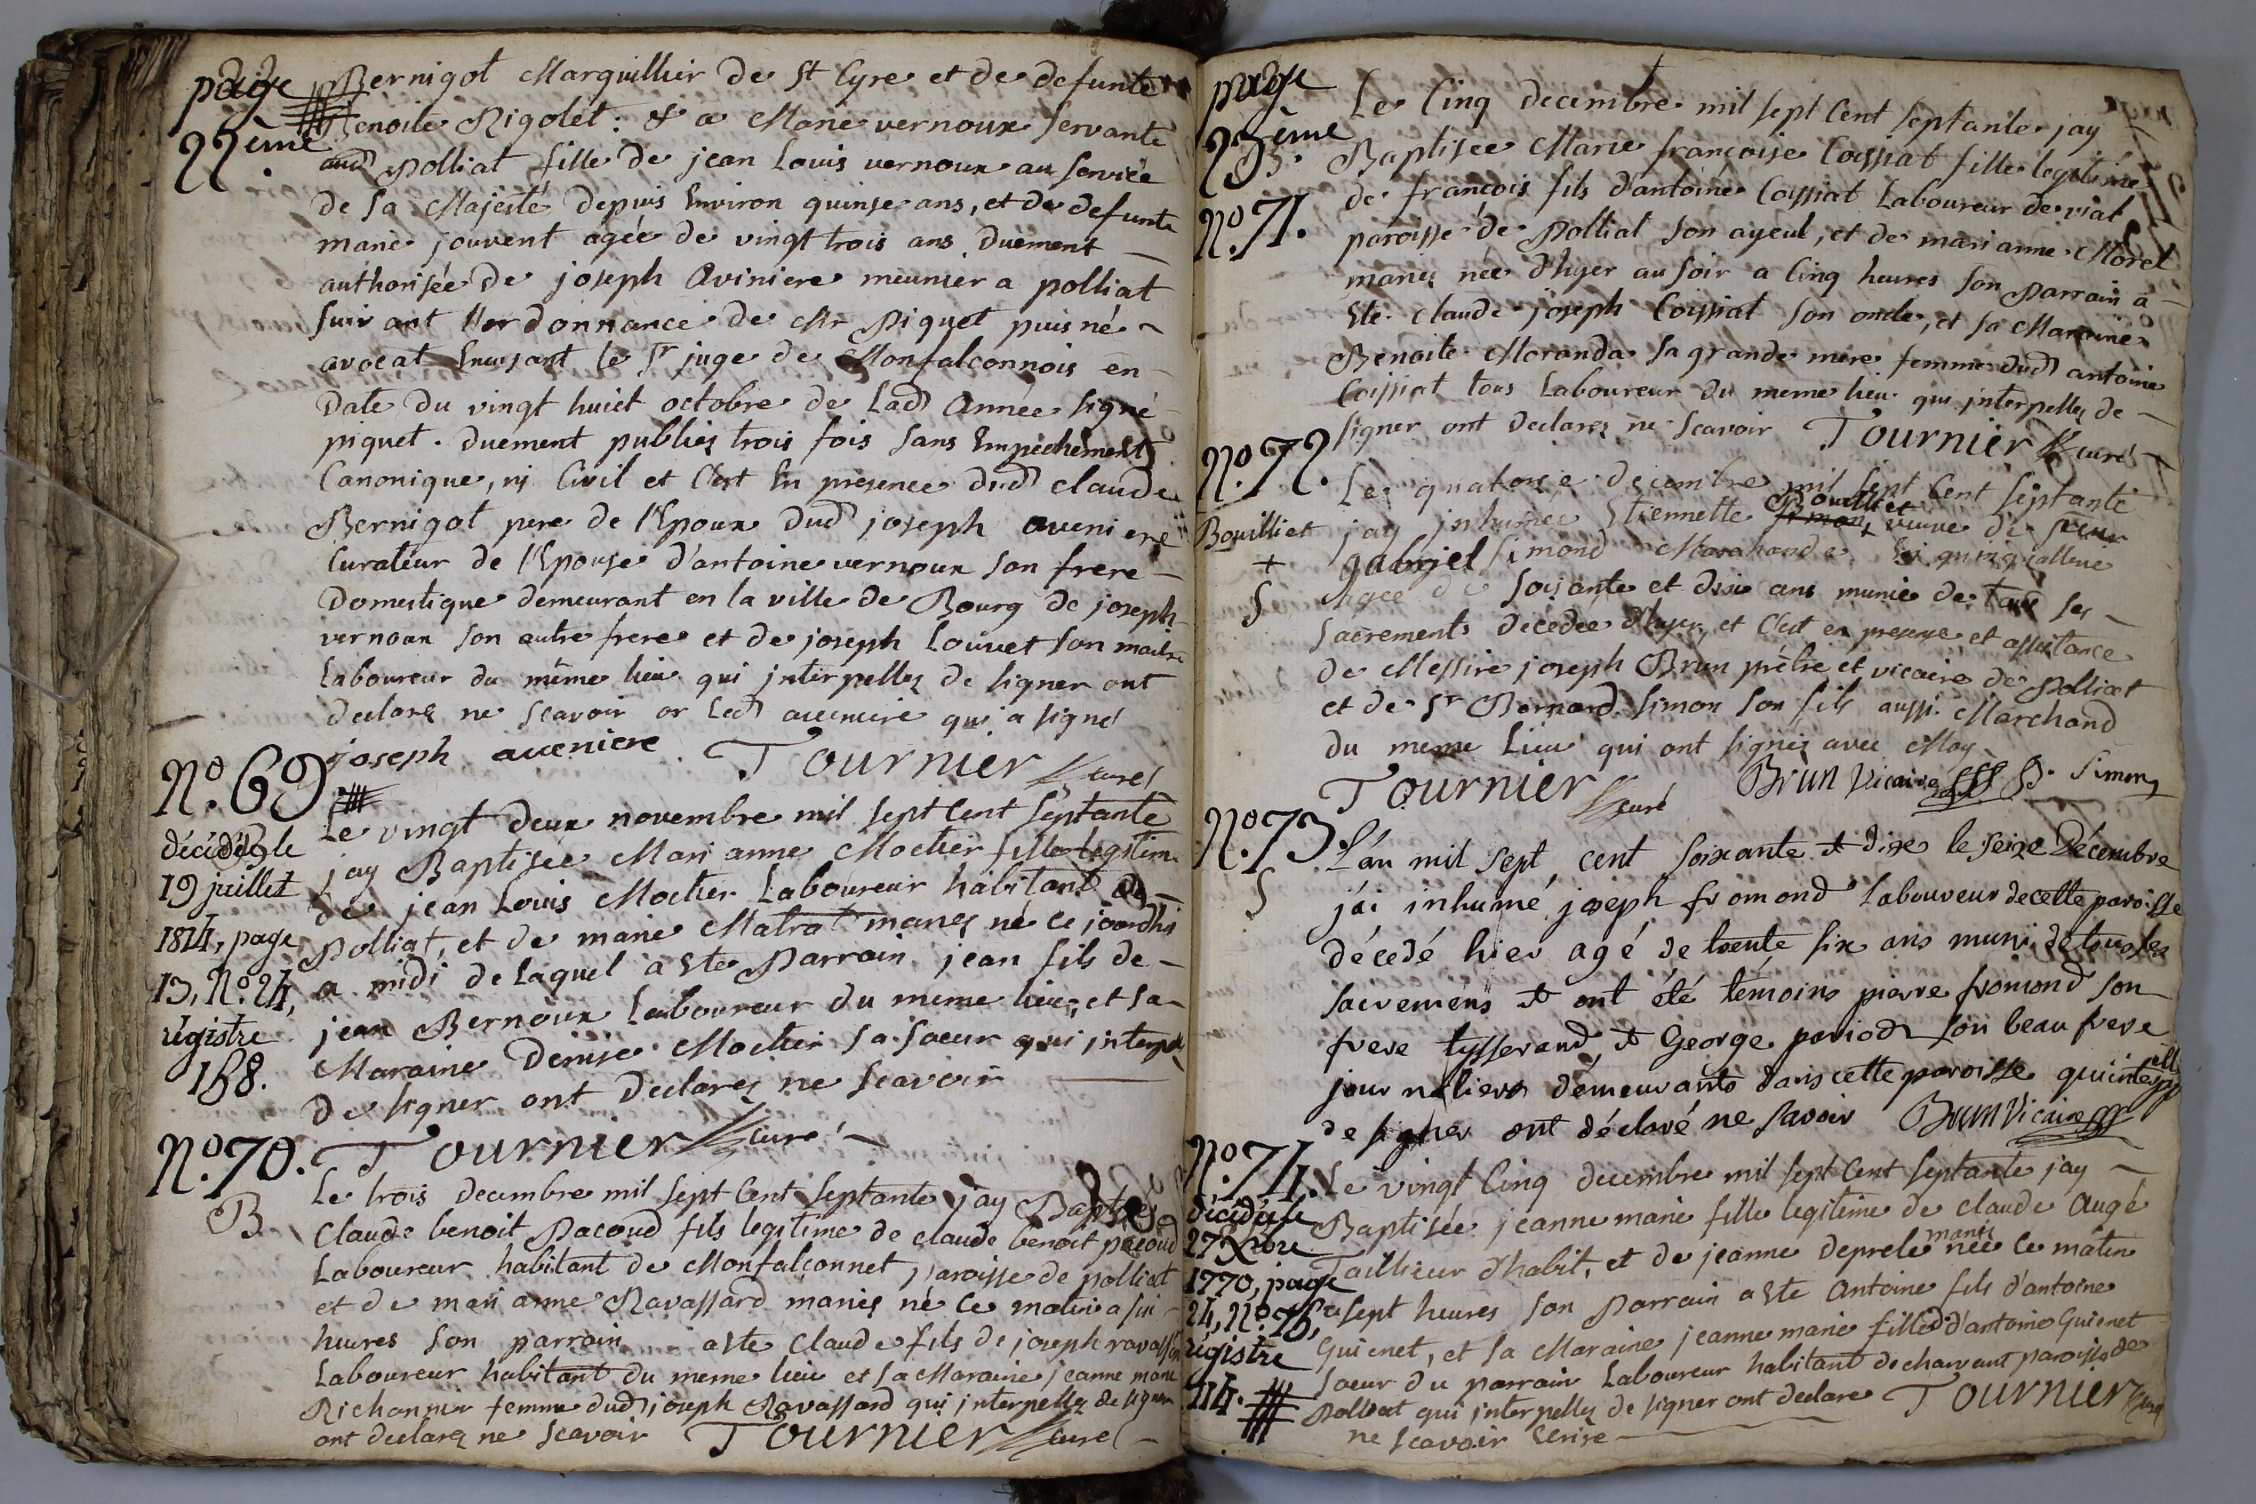 page
22ème.
Bernigot Marguillier de St Cyre et de defunte
Benoite Rigolet: & a Marie vernoux servante
aud polliat fille de jean Louis vernoux au service
de sa Majesté depuis Environ quinse ans, et de defunte
marie jouvent agée de vingt trois ans duement
authorisée de joseph Aviniere meunier a polliat
suivant l'ordonnance de Mr Piquet puisné
avocat Enexsant le Sr juge de Monfalconnois en
Date du vingt huict octobre de Lad Année signé
piquet. duement publiez trois fois sans Empechement
Canonique, nj Civil et C'est En presence dud claude
Bernigot pere de l'Epoux dud joseph aveniere
Curateur de l'Epouse d'antoine vernoux son frere
Domestique demeurant en la ville de Bourg de joseph
vernoux son autre frere et de joseph Louvet son maitre
Laboureur du même lieu qui interpellez de signer ont
declarez ne scavoir or Led aveniere qui a signé
joseph aveniere Tournier curé
No. 69
décédée le
19 juillet
1814, page
13, No. 24,
régistre
158.
Le vingt deux novembre mil sept Cent septante
jay Baptisée Mari anne Mochier fille legitime
de jean Louis Mochier Laboureur habitant de
Polliat, et de marie Matrat mariez né ce jourdhi
a midi de Laquel a Ete Parrain jean fils de
jean Bernoux Laboureur du meme lieu, et sa
Maraine Denise Mochier sa soeur qui interpel
de signer ont declarez ne scavoir
Tournier curé
No. 70.
B
Le trois decembre mil sept Cent septante jay Baptisé
Claude benoit Pacoud fils legitime de claude benoit pacoud
Laboureur habitant de Monfalconnet paroisse de polliat
et de mari anne Ravassard mariez né ce matin a six
heures son parrain a Ete Claude fils de joseph ravassard
Laboureur habitant du meme lieu et sa Maraine jeanne marie
Richonnier femme dud joseph Ravassard qui interpellez de signer
ont declarez ne scavoir Tournier curé
page
23ème.
No. 71.
Le Cinq decembre mil sept Cent septante jay
Baptisée Marie françoise Coissiat fille legitime
de françois fils d'antoine Coissiat Laboureur de viat
paroisse de Polliat son ayeul, et de mari anne Morel
mariez née d'hyer au soir a Cinq heures son parrain a
Ete claude joseph Coissiat son oncle, et sa Maraine
Benoite Moranda sa grande mere femme dud antoine
Coissiat tous Laboureur du meme lieu qui interpellez de
signer ont declarez ne scavoir Tournier curé
No. 72.
Bouilliet
+
S
Le quatorze decembre mil sept Cent septante
jay inhumée Etiennette Bouilliet veuve de sieur
gabriel simond Marchande
agée de soixante et dix ans munie de tous ses
sacrements decedée d'hyer, et C'est en presence et assistance
de Messire joseph Brun prêtre et vicaire de Polliat
et de Sr Bernard Simon son fils aussi Marchand
du meme Lieu qui ont signez avec Moy
Tournier curé Brun Vicaire B. Simon
No. 73.
S
L'an mil sept cent soixante et dix le seize Décembre
j'ai inhumé joseph fromond laboureur de cette paroisse
décedé hier agé de trente six ans muni de tous les
sacremens et ont été témoins pierre fromond son
frere tysserand, et George period son beau frere
journaliers demeurants dans cette paroisse qui interpellé
de signer ont déclaré ne savoir Brun Vicaire
No. 74.
décédée le
27 Xbre
1770, page
24, No. 76,
régistre
114.
Le vingt Cinq decembre mil sept Cent septante jay
Baptisée jeanne marie fille legitime de claude Augé
Taillieur d'habit, et de jeanne deprele mariez née ce matin
a sept heures son Parrain a Ete Antoine fils d'antoine
Guienet, et sa Maraine jeanne marie fille d'antoine Guienet
soeur du parrain Laboureur habitant de charvant paroisse de
Polliat qui interpellez de signer ont declare Tournier curé
ne scavoir Ecrire